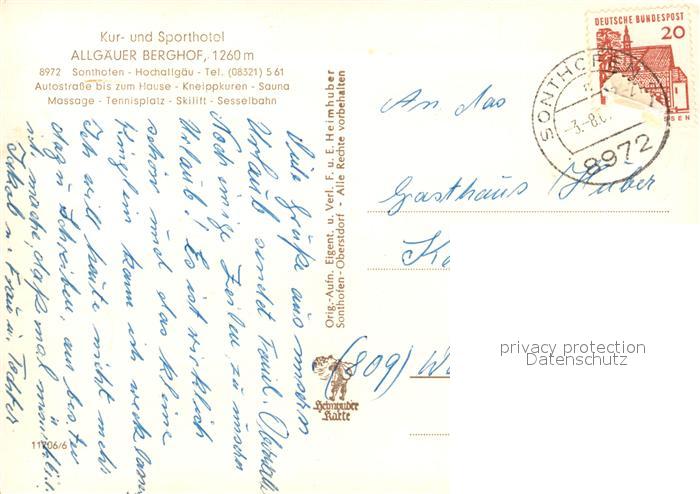 Kur- und Sporthotel
ALLGÄUER BERGHOF, 1260 m
8972 Sonthofen - Hochallgäu - Tel. (08321) 5 61
Autostraße bis zum Hause - Kneippkuren - Sauna
Massage - Tennisplatz - Skilift - Sesselbahn
Viele Grüße aus unserm
Urlaub sendet Fam.
Noch einige Zeilen zu unserm
Urlaub! Es ist wirklich
schön und das kleine
kann ich
Ich will heute nicht mehr
dazu schreiben, am besten
ist, macht, daß mal
Jakob u. Frau u. Tochter
11706/6
Orig.-Aufn. Eigent. u. Verl. F. u. E. Heimhuber
Sonthofen-Oberstdorf - Alle Rechte vorbehalten
Heimhuber
Karte
DEUTSCHE BUNDESPOST
20
SSEN
SONTHOFEN
-3.-8.6
8972
An das
Gasthaus Huber
(809) W
privacy protection
Datenschutz